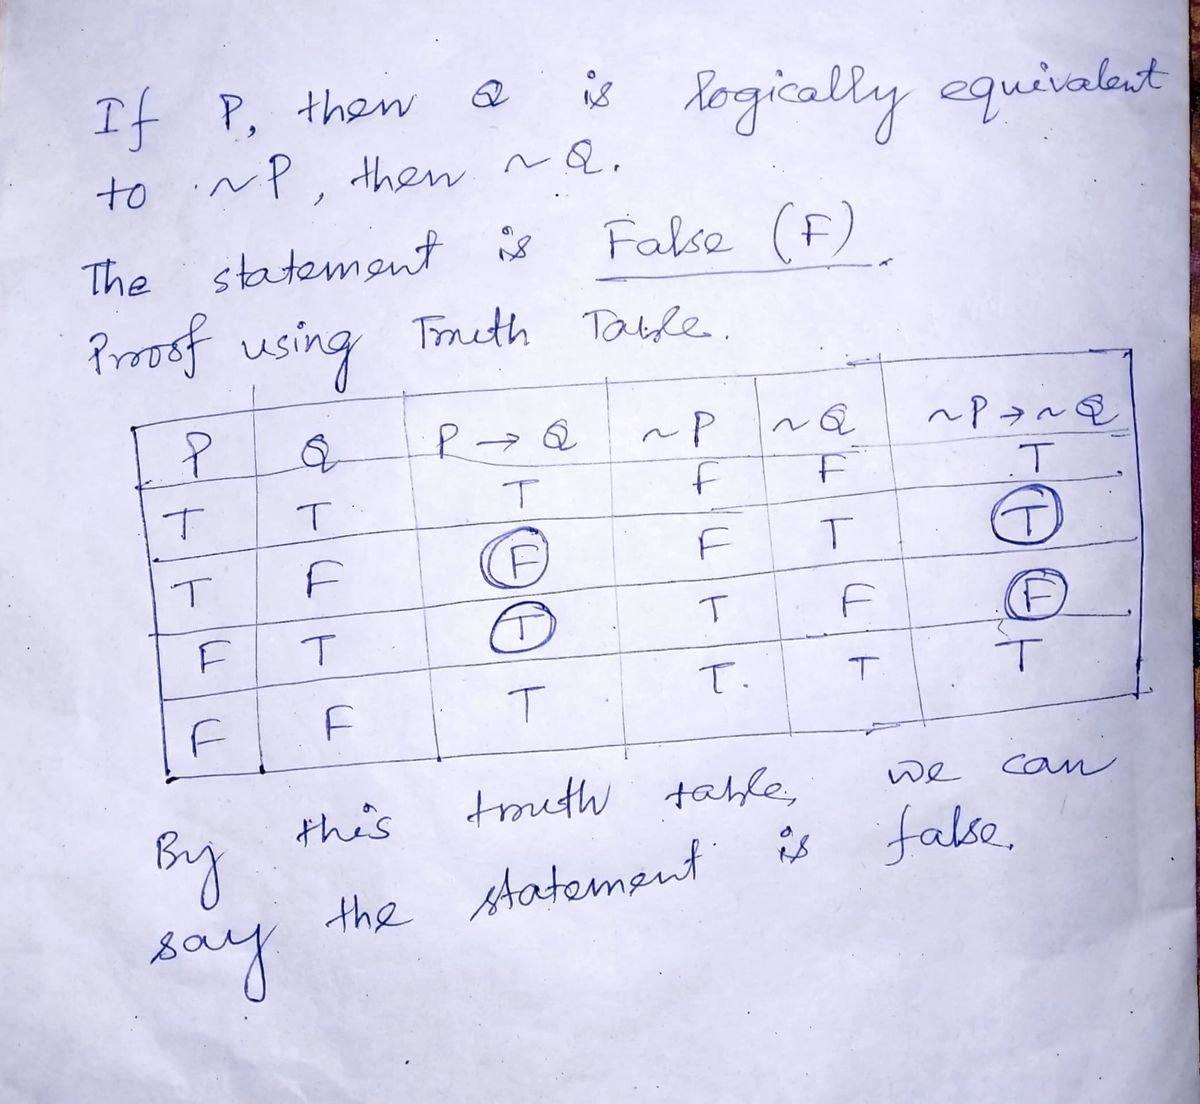 If P, then Q is logically equivalent
to ~P, then ~Q.
The statement is False (F).
Proof using Truth Table.
P Q P → Q ~P ~Q ~P → ~Q
T T T F F T
T F F F T T
F T T T F F
F F T T. T T
By this truth table, we can
say the statement is false.